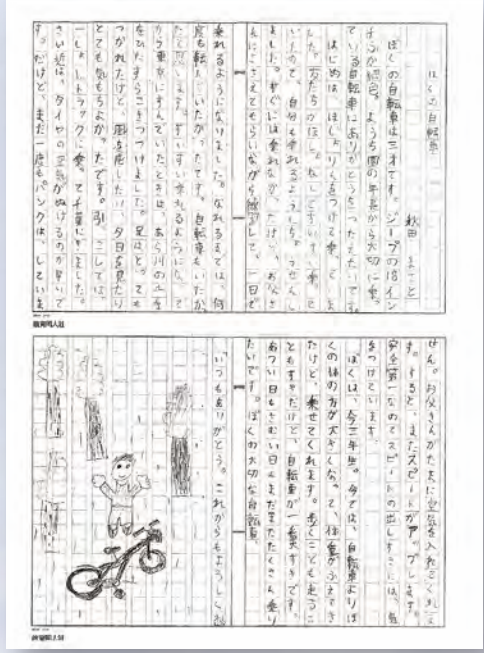 ぼくの自転車
秋田 まこと
ぼくの自転車は三才です。ジープの16イン
ようち園の年長から大切に乗っ
ている自転車にありがとうをつたえたいです。
はじめは、ほじょりんをつけて乗っていまし
た。友だちがほじょなしですいすい乗って
いたので、自分も乗れるように
ました。すぐには乗れなかったけど、お父さ
んにささえてもらいながら練習して、一日で
乗れるようになりました。なれるまでは、何
度も転んでいたかったです。自転車もいたか
ったと思います。すいすい乗れるようになって
から東京にすんでいたときは、あら川の土手
をひたすらこぎつづけました。足はとっても
つかれたけど、風を感じたり、夕日を見たり
とても気もちよかったです。引っこしでは、
いっしょにトラックに乗って千葉にきました。
さい近は、タイヤの空気がぬけるのが早いで
す。だけど、まだ一度もパンクは、していま
せん。お父さんがたまに空気を入れてくれま
す。すると、またスピードがアップします。
安全第一なのでスピードの出しすぎには、気
をつけています。
ぼくは、今三年生。今では、自転車よりぼ
くの体の方が大きくなって、体重がふえてき
たけど、乗せてくれます。歩くことも走るこ
ともすきだけど、自転車が一番大すきです。
あつい日もさむい日もまだまだたくさん乗り
たいです。ぼくの大切な自転車。
いつもありがとう。これからもよろしくね